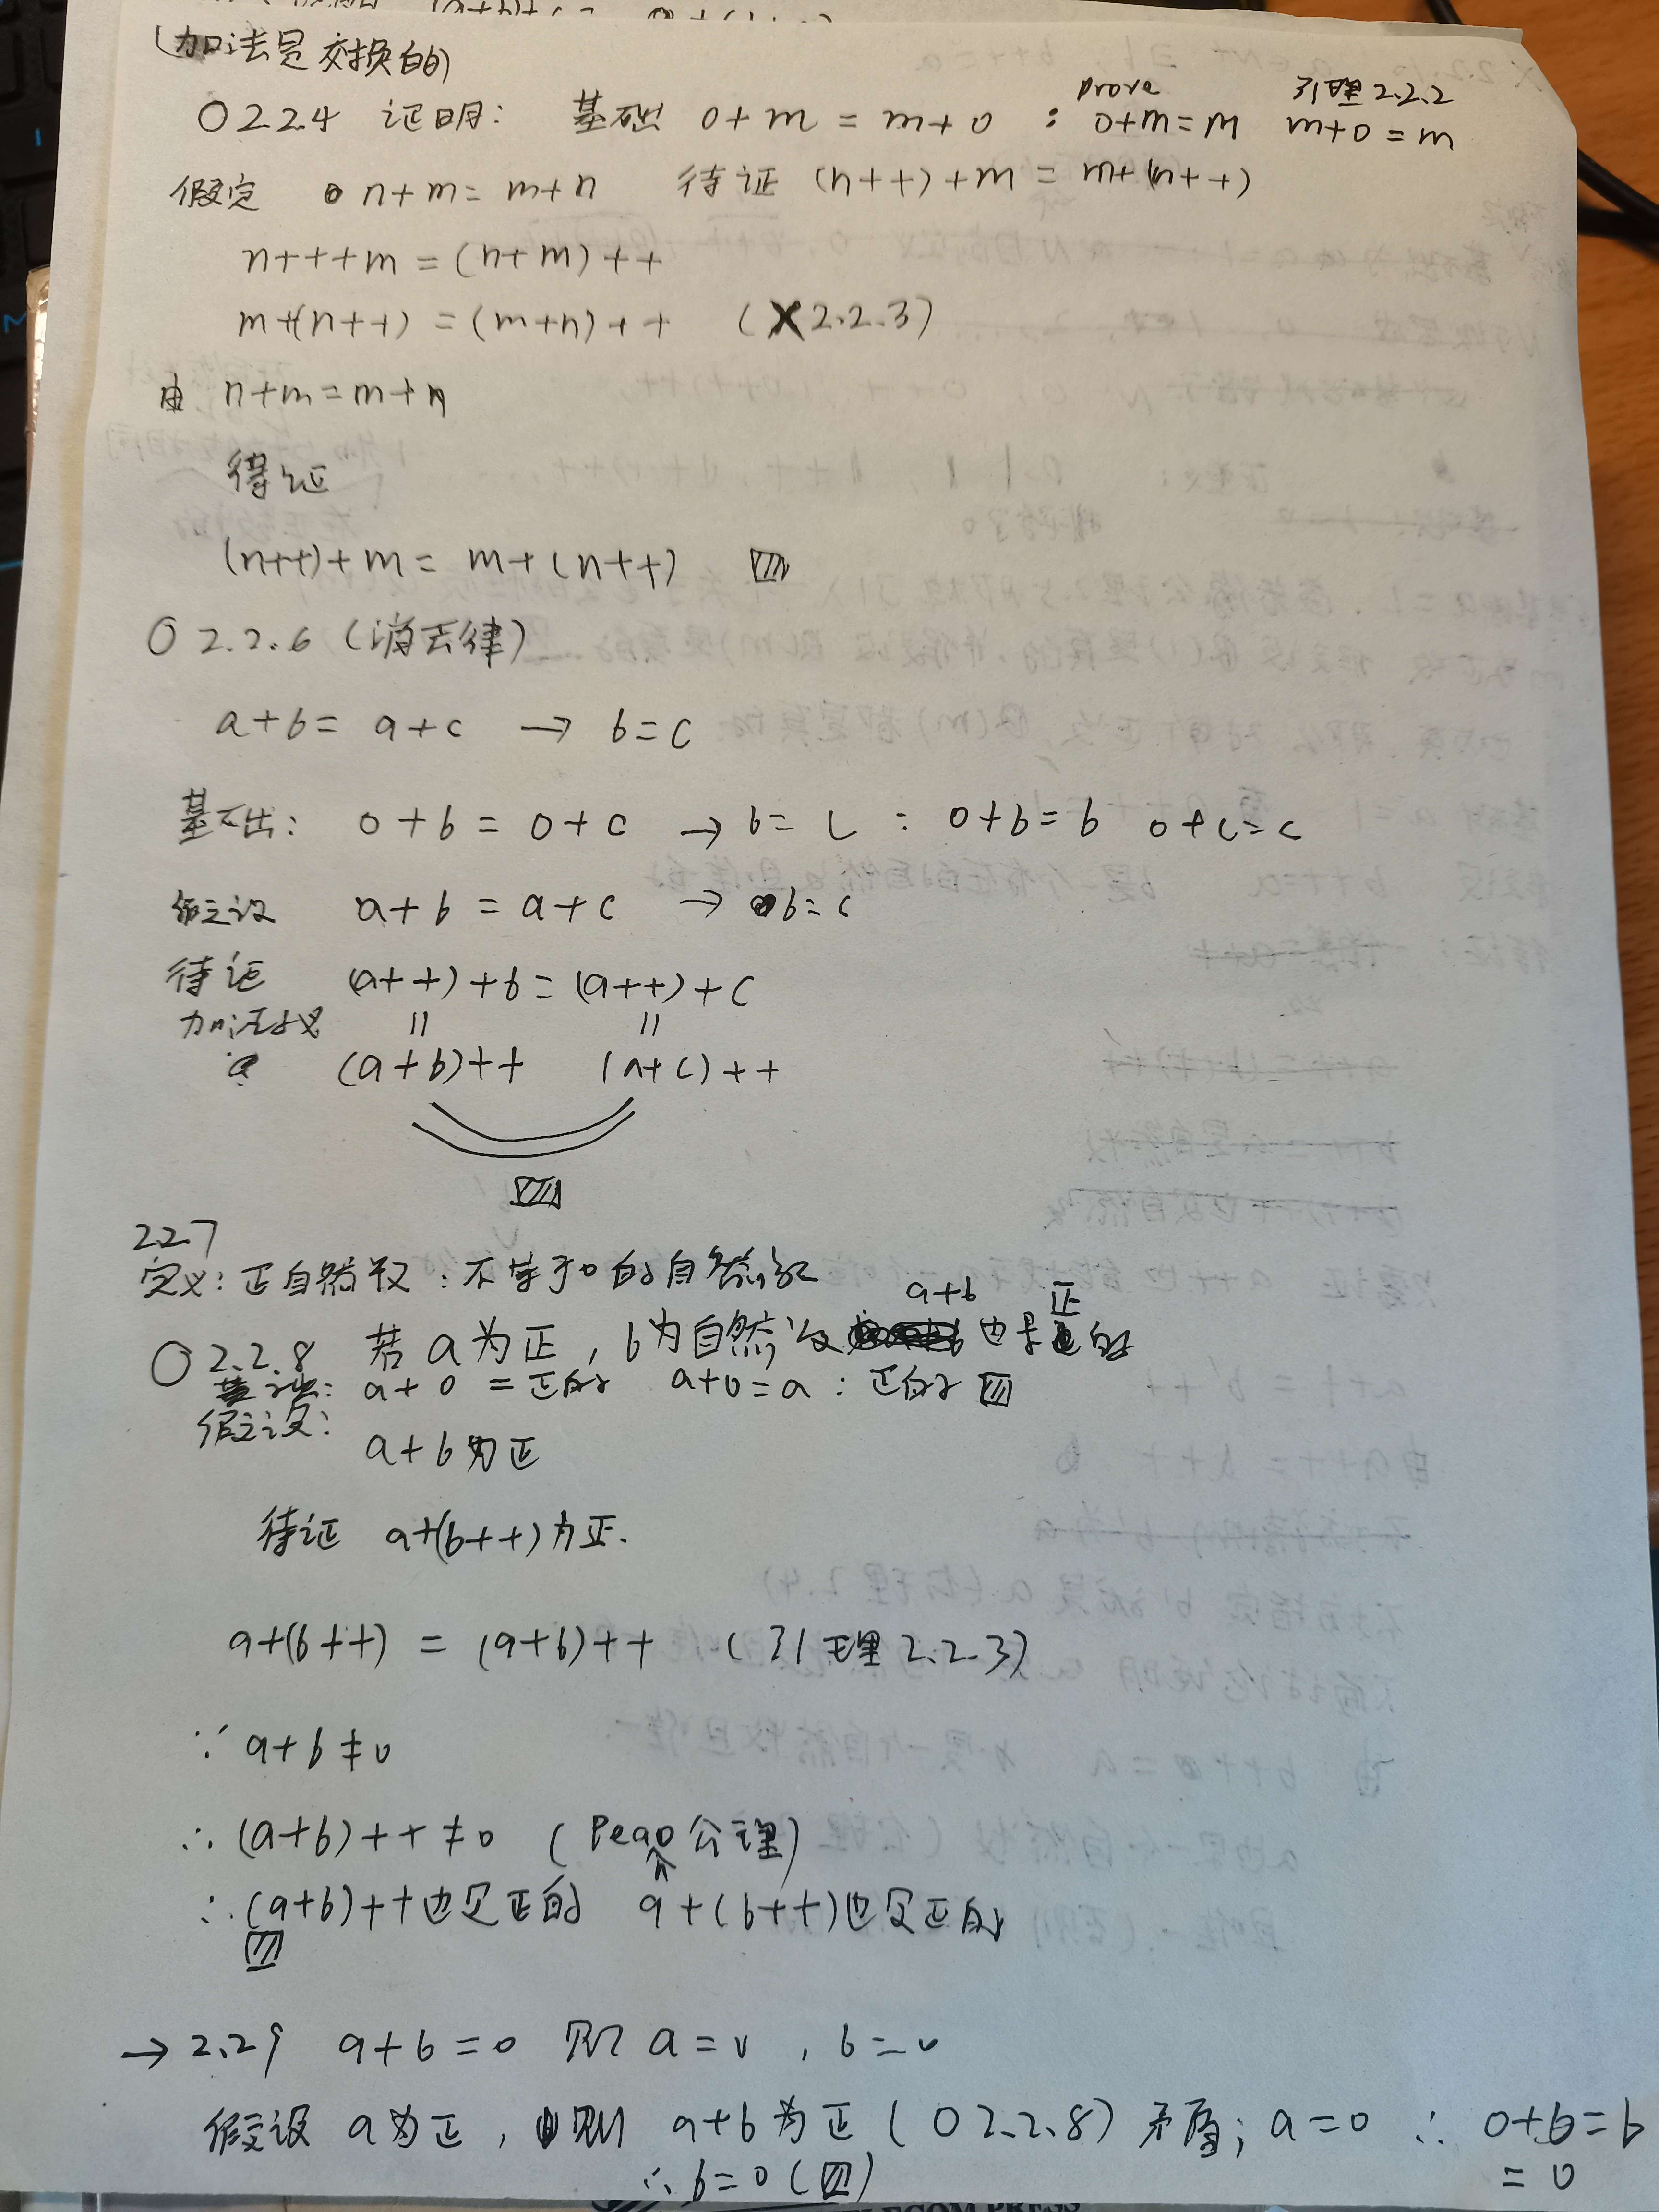 (加法是交换的)
prove 引理2.2.2
O 2.2.4 证明: 基础 0+m = m+0 : 0+m=m m+0=m
假定 n+m=m+n 待证 (n++)+m = m+(n++)
n+++m=(n+m)++
m+(n++)=(m+n)++ (X2.2.3)
由 n+m=m+n
得证
(n++)+m= m+(n++)
O 2.2.6 (消去律)
a+b= a+c → b=c
基础: 0+b = 0+c → b=c : 0+b=b 0+c=c
假设 a+b = a+c → b=c
待证 (a++)+b=(a++)+c
加法定义 || ||
(a+b)++ (a+c)++
2.2.7
定义: 正自然数: 不等于0的自然数
a+b 正
O 2.2.8 若a为正, b为自然数 也是的
基础: a+0 = 正的 a+0=a : 正的
假设:
a+b为正
待证 a+(b++)为正.
a+(b++) = (a+b)++ (引理2.2.3)
∵ a+b≠0
∴ (a+b)++≠0 (Peano公理)
∴ (a+b)++也是正的 a+(b++)也是正的
→ 2.2.9 a+b=0 则 a=0, b=0
假设 a为正, 则 a+b为正 (O 2.2.8) 矛盾; a=0 ∴ 0+b=b
∴ b=0 = 0